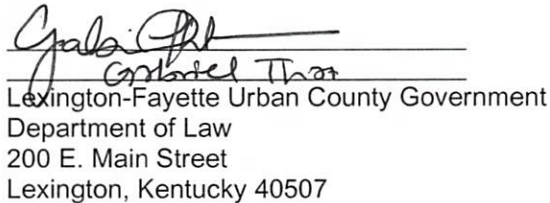 Gabriel
Lexington-Fayette Urban County Government
Department of Law
200 E. Main Street
Lexington, Kentucky 40507